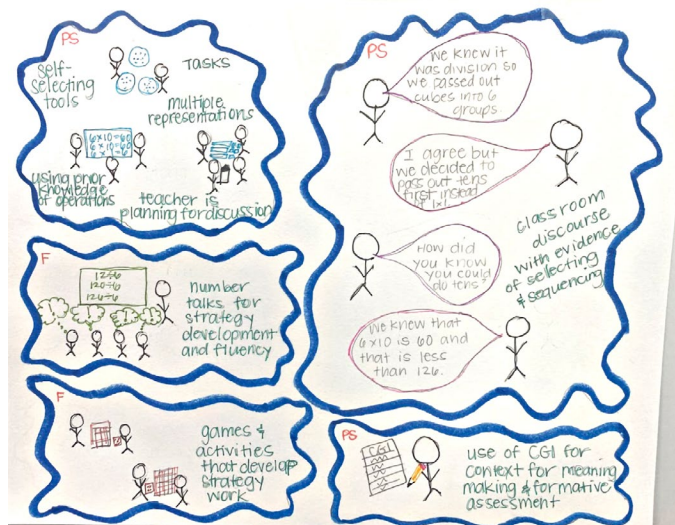 PS
self-
selecting
tools
TASKS
multiple
representations
6x10=60
6x10=60
using prior
knowledge
of operations
teacher is
planning for discussion
F
12÷6
120÷6
126÷6
number
talks for
strategy
development
and fluency
F
games &
activities
that develop
strategy
work
PS
We knew it
was division so
we passed out
cubes into 6
groups.
I agree but
we decided to
pass out tens
first instead
of 1x1.
How did
you know
you could
do tens?
We knew that
6x10 is 60 and
that is less
than 126.
classroom
discourse
with evidence
of selecting
& sequencing
PS
CGI
use of CGI for
context for meaning
making & formative
assessment